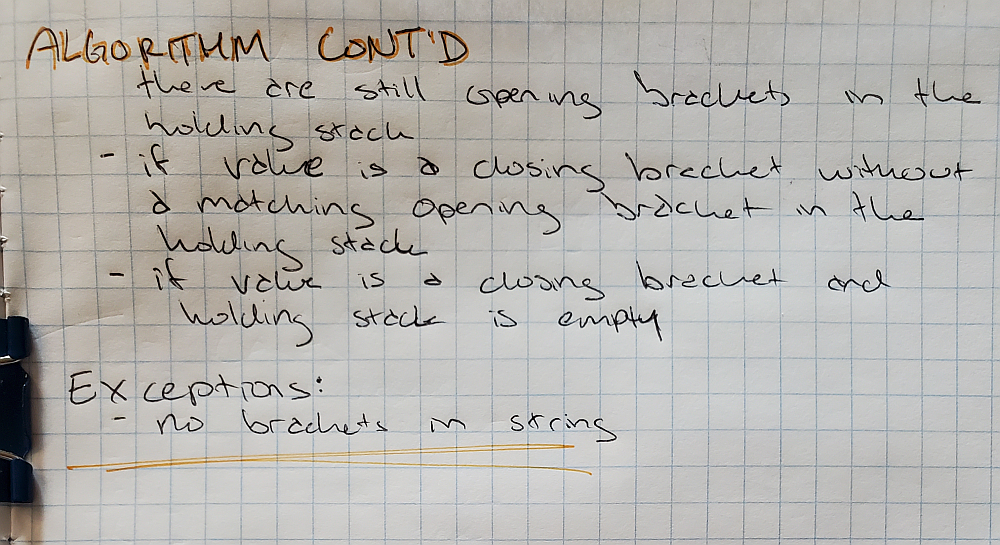 ALGORITHM CONT'D
there are still opening brackets in the
holding stack
- if value is a closing bracket without
a matching opening bracket in the
holding stack
- if value is a closing bracket and
holding stack is empty
Exceptions:
- no brackets in string